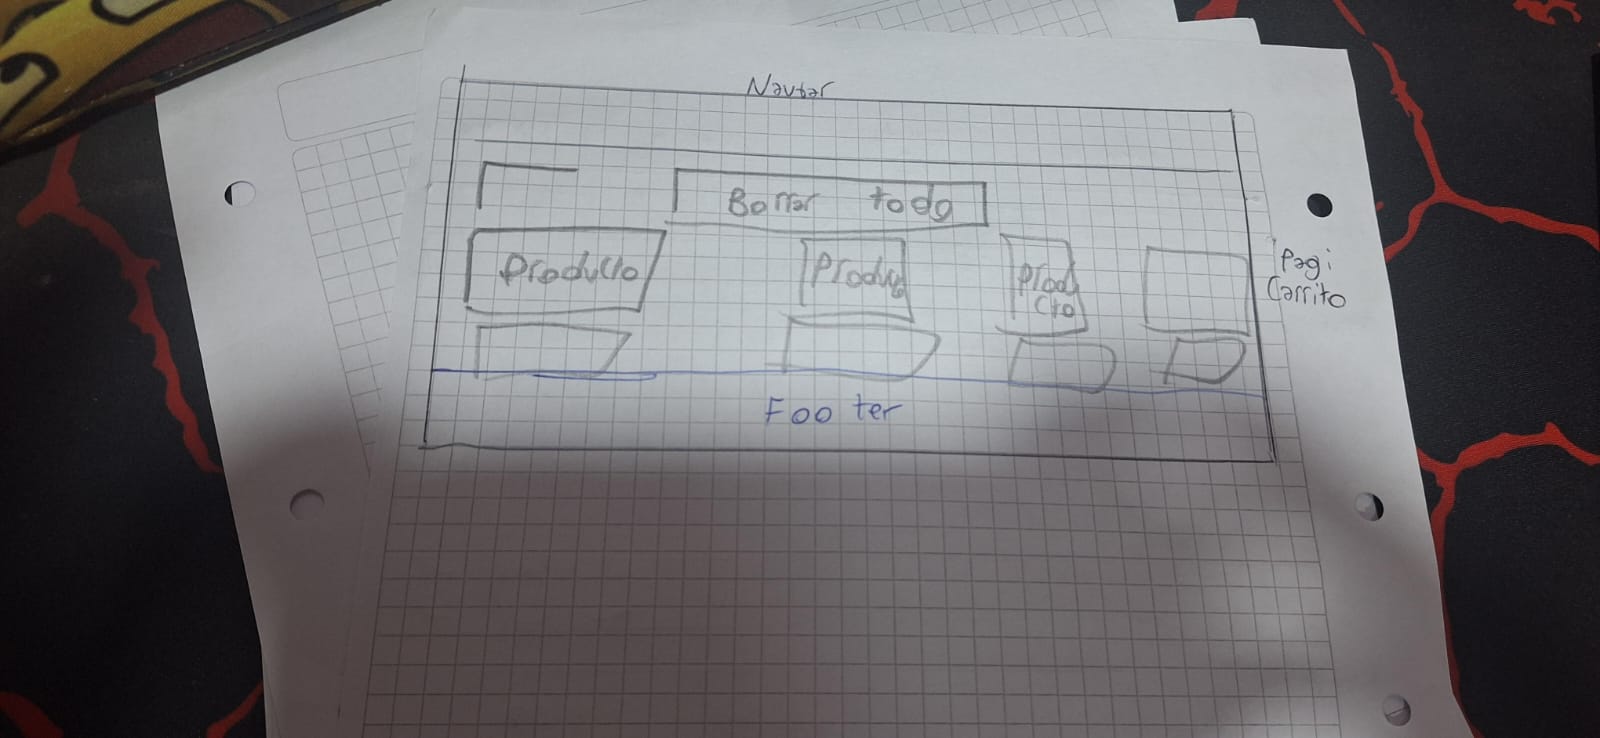 Navbar
Borrar todo
Producto
Produc
Prod
cto
Pagi
Carrito
Footer